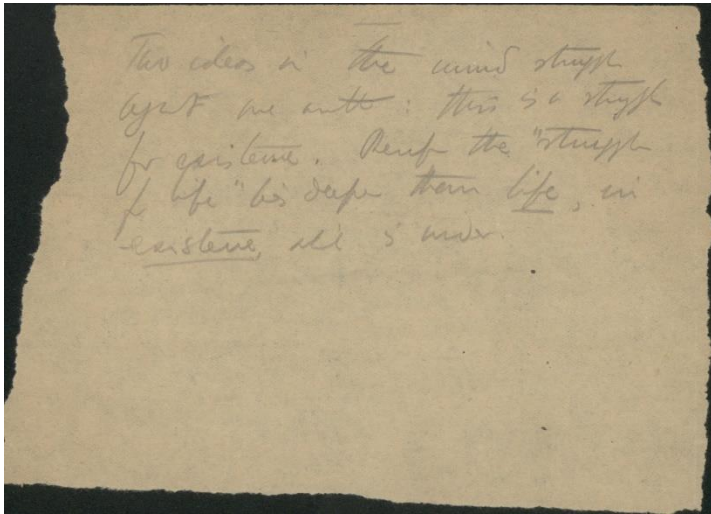 Two ideas in the mind struggle
against one another : this is a struggle
for existence. Therefore the "struggle
for life" lies deeper than life, in
existence,